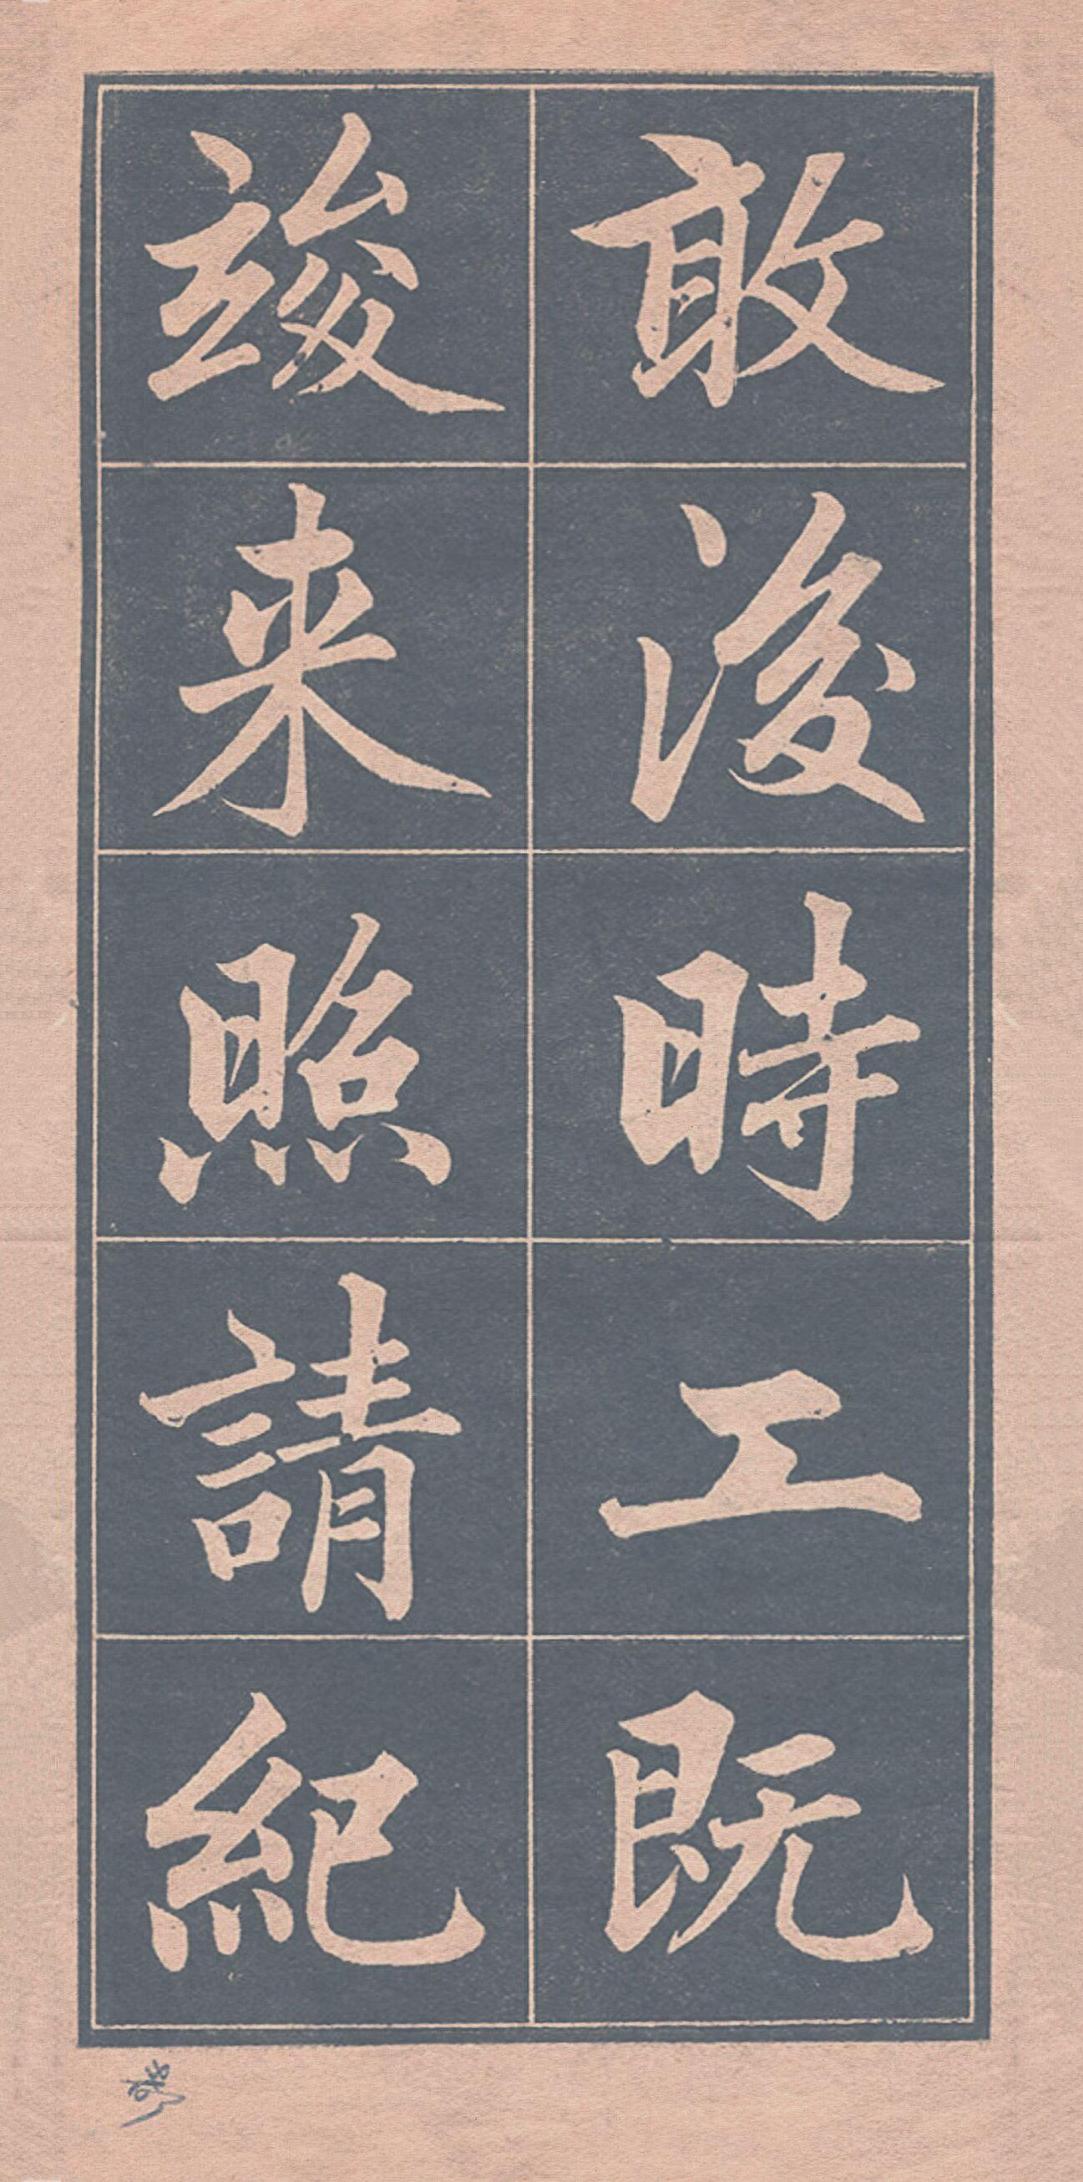 敢後時工既
竣来照請紀